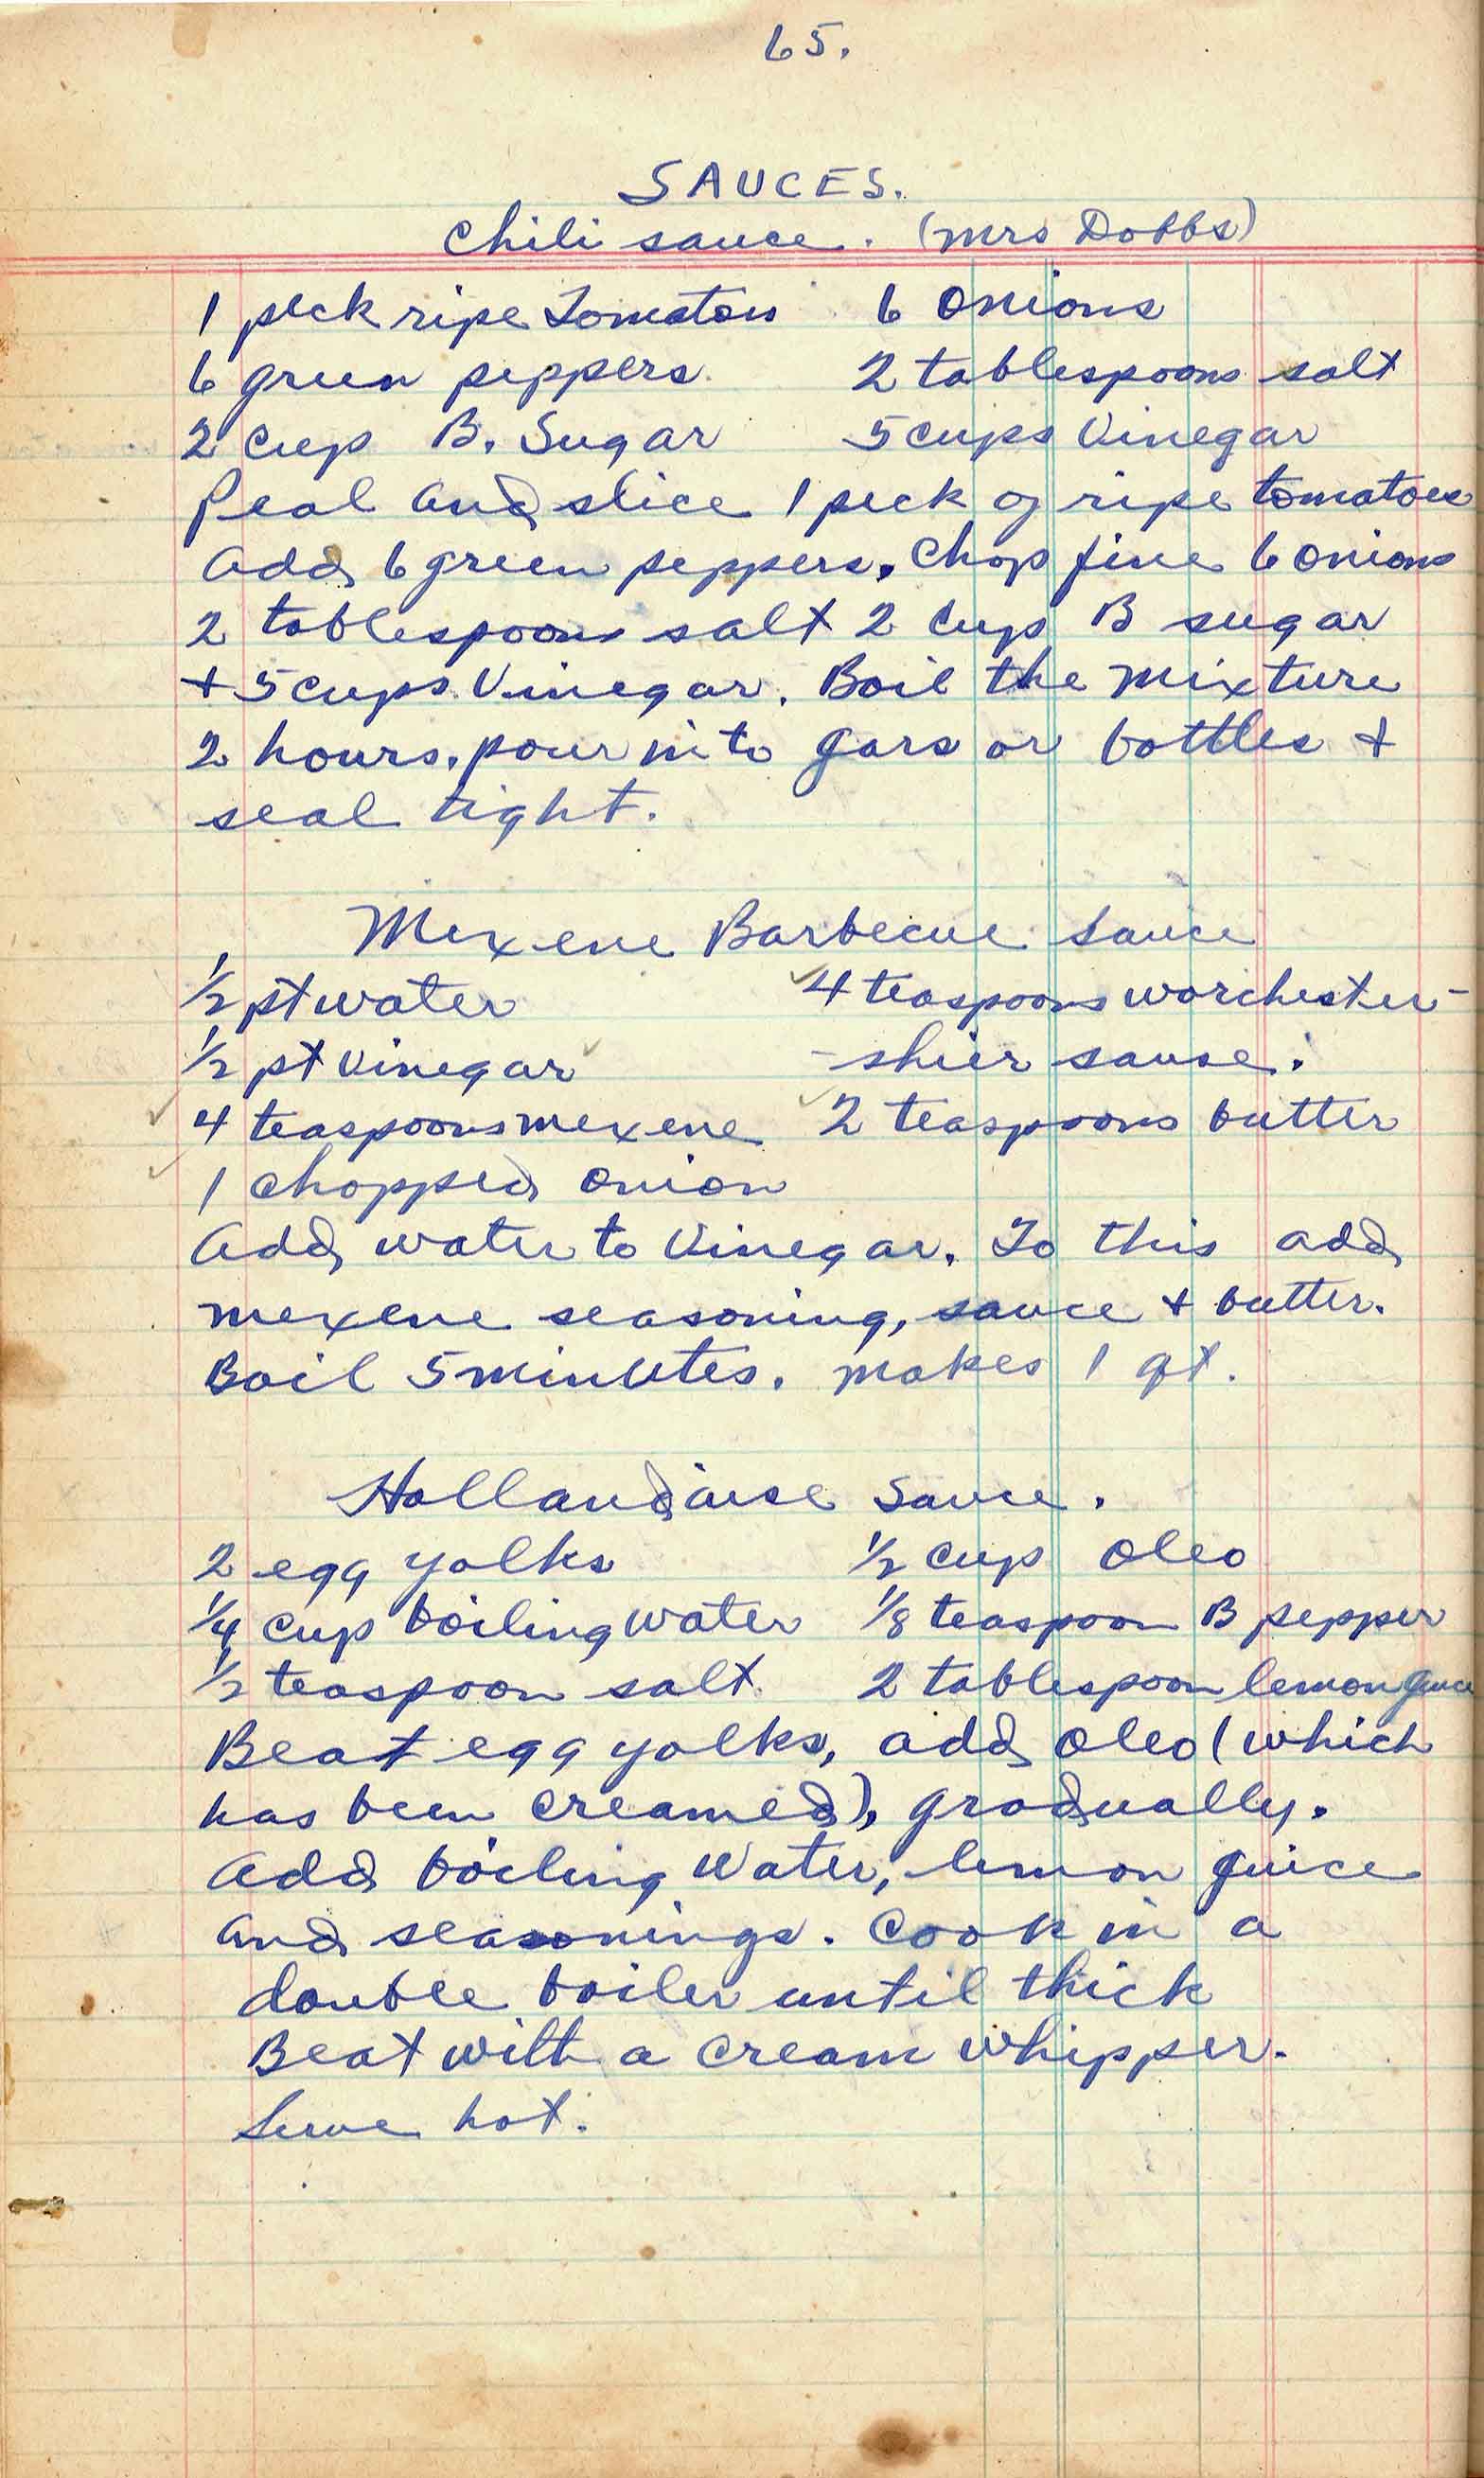 65.
SAUCES.
Chili sauce. (Mrs Dobbs)
1 peck ripe Tomatoes 6 Onions
6 green peppers 2 tablespoons salt
2 cup B. Sugar 5 cups Vinegar
Peal and slice 1 peck of ripe tomatoes
Add 6 green peppers. Chop fine 6 Onions
2 tablespoons salt 2 Cup B sugar
+ 5 cups Vinegar. Boil the Mixture
2 hours. pour into gars or bottles +
seal tight.
Mexene Barbecue Sauce
1/2 pt water 4 teaspoons worchester-
1/2 pt Vinegar -shier sause.
4 teaspoons mexene 2 teaspoons butter
1 Chopped Onion
Add water to Vinegar. To this add
mexene seasoning, sauce + butter.
Boil 5 minutes. makes 1 qt.
Hollandaise Sauce.
2 egg yolks 1/2 cup Oleo
1/4 cup boiling water 1/8 teaspoon B pepper
1/2 teaspoon salt. 2 tablespoon lemon guice
Beat egg yolks, add Oleo (which
has been Creamed), gradually.
Add boiling Water, lemon guice
and seasonings. Cook in a
double boiler until thick
Beat with a Cream Whipper.
Serve hot.